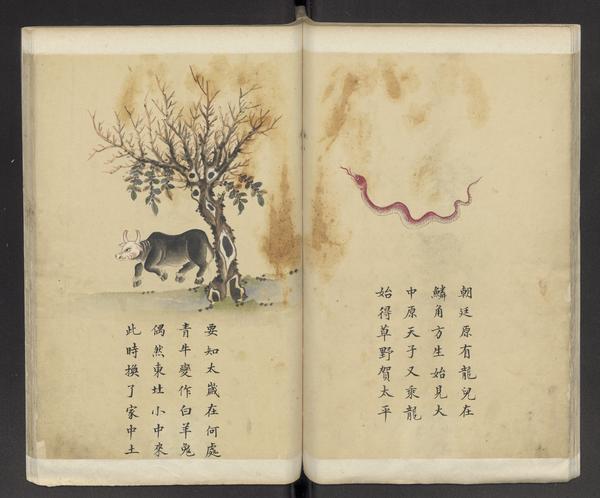 朝廷原有龍兒在
鱗角方生始見大
中原天子又乘龍
始得草野賀太平
要知太歲在何處
青牛變作白羊兔
偶然東𡈽小中來
此時換了家中土